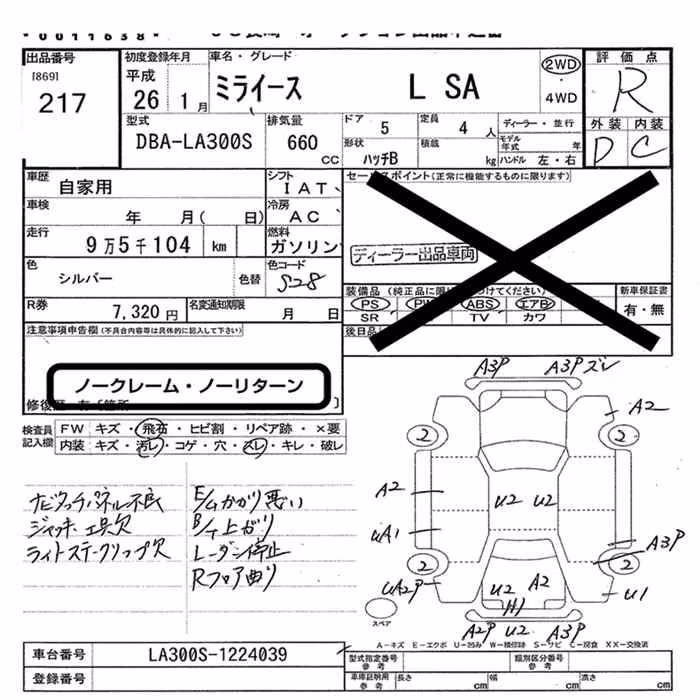 出品番号
[869]
217
初度登録年月
平成
26 1月
車名・グレード
ミライース L SA
2WD
・
4WD
評価点
R
外装 内装
D C
型式
DBA-LA300S
排気量
660
CC
ドア
5
定員
4 人
ディーラー・並行
モデル年式 年
形状
ハッチB
積載
kg
ハンドル 左・右
車歴
自家用
シフト
IAT
セールスポイント(正常に機能するものに限ります)
車検
年 月( 日)
冷房
AC
走行
9万5千104 km
燃料
ガソリン
ディーラー出品車両
色
シルバー
色替
色コード
S28
装備品
PS
ABS
エアB
SR TV カワ
新車保証書
有・無
R券
7,320 円
名変通知期限
月 日
後日品
注意事項申告欄(不具合内容等は具体的に記入して下さい)
ノークレーム・ノーリターン
検査員
記入欄
FW キズ・飛石・ヒビ割・リペア跡・×要
内装 キズ・汚レ・コゲ・穴・スレ・キレ・破レ
ジャッキ 工具欠
E/ムかかり悪い
レーダー停止
Rフロア曲り
A3P A3Pズレ
2 2 A2
A2 U2 U2
UA1 A3P
2 2
UA2P U2 A2 U1
H1
A2P U2 A3P
スペア
A-キズ E-エクボ U-凹み W-補修跡 S-サビ C-腐食 XX-交換済
車台番号 LA300S-1224039
登録番号
型式指定番号
参考
類別区分番号
参考
車庫証明用
参考
長さ cm 幅 cm 高さ cm